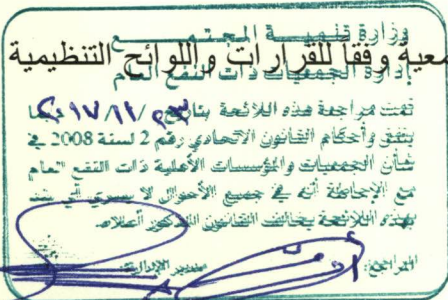 وزارة تنمية المجتمع
معية وفقاً للقرارات و اللوائح التنظيمية
إدارة الجمعيات ذات النفع العام
تمت مراجعة هذه اللائحة بتاريخ / 11 / 17 بما
يتفق وأحكام القانون الاتحادي رقم 2 لسنة 2008 في
شأن الجمعيات والمؤسسات الأهلية ذات النفع العام
مع الإحاطة أنه في جميع الأحوال لا يسري أي بند
بهذه اللائحة يخالف القانون المذكور أعلاه.
المراجع: مدير الإدارة: